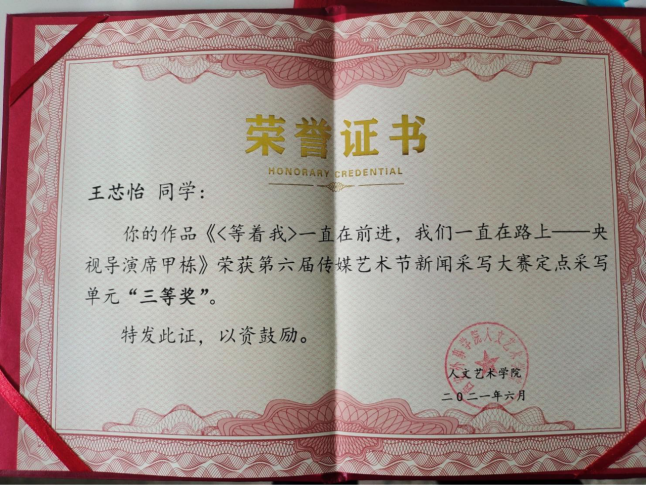 荣誉证书
HONORARY CREDENTIAL
王芯怡 同学：
你的作品《<等着我>一直在前进，我们一直在路上——央
视导演席甲栋》荣获第六届传媒艺术节新闻采写大赛定点采写
单元“三等奖”。
特发此证，以资鼓励。
人文艺术学院
二〇二一年六月